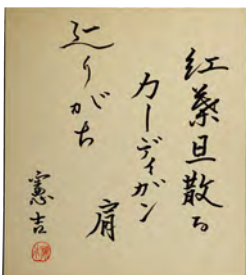 紅葉且散る
カーディガン肩
辷りがち
憲吉